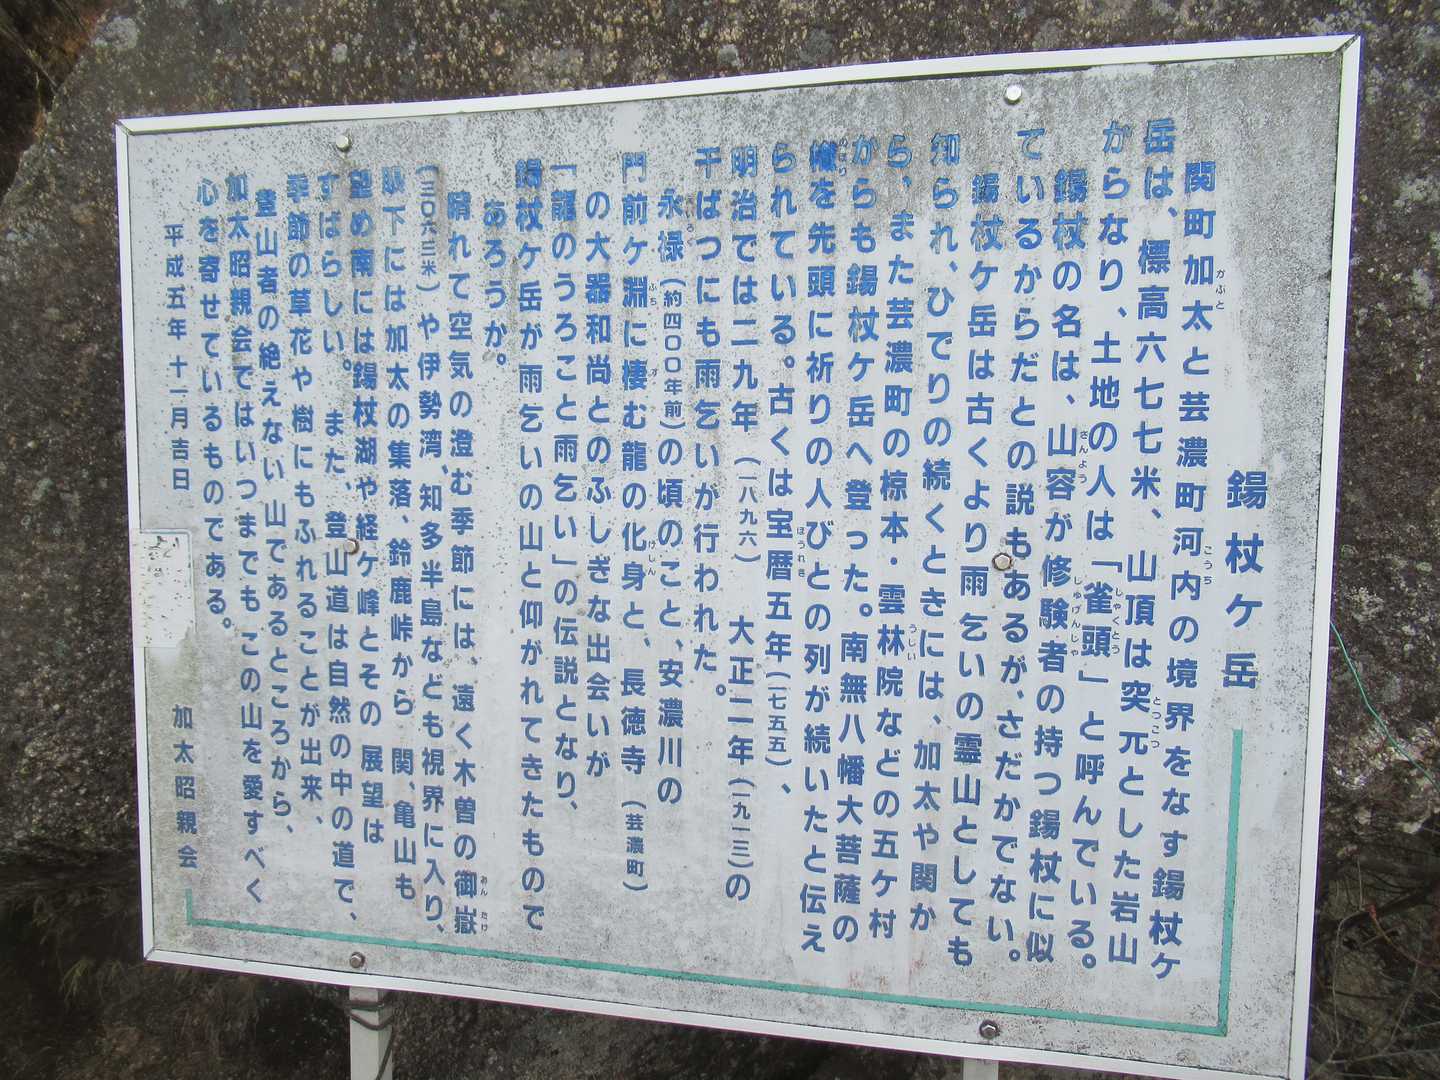 錫杖ヶ岳
関町加太と芸濃町河内の境界をなす錫杖ヶ
岳は、標高六七七米、山頂は突兀とした岩山
からなり、土地の人は「雀頭」と呼んでいる。
錫杖の名は、山容が修験者の持つ錫杖に似
ているからだとの説もあるが、さだかでない。
錫杖ケ岳は古くより雨乞いの霊山としても
知られ、ひでりの続くときには、加太や関か
ら、また芸濃町の椋本・雲林院などの五ケ村
からも錫杖ケ岳へ登った。南無八幡大菩薩の
幟を先頭に祈りの人びとの列が続いたと伝え
られている。古くは宝暦五年(一七五五)、
明治では二九年(一八九六)大正二年(一九一三)の
干ばつにも雨乞いが行われた。
永禄(約四〇〇年前)の頃のこと、安濃川の
門前ケ淵に棲む龍の化身と、長徳寺(芸濃町)
の大器和尚とのふしぎな出会いが
「龍のうろこと雨乞い」の伝説となり、
錫杖ケ岳が雨乞いの山と仰がれてきたもので
あろうか。
晴れて空気の澄む季節には、遠く木曽の御嶽
(三〇六三米)や伊勢湾、知多半島なども視界に入り、
眼下には加太の集落、鈴鹿峠から 関、亀山も
望め南には錫杖湖や経ケ峰とその 展望は
すばらしい。また、登山道は自然の中の道で、
季節の草花や樹にもふれることが出来、
登山者の絶えない山であるところから、
加太昭親会ではいつまでもこの山を愛すべく
心を寄せているものである。
平成五年十一月吉日
加太昭親会